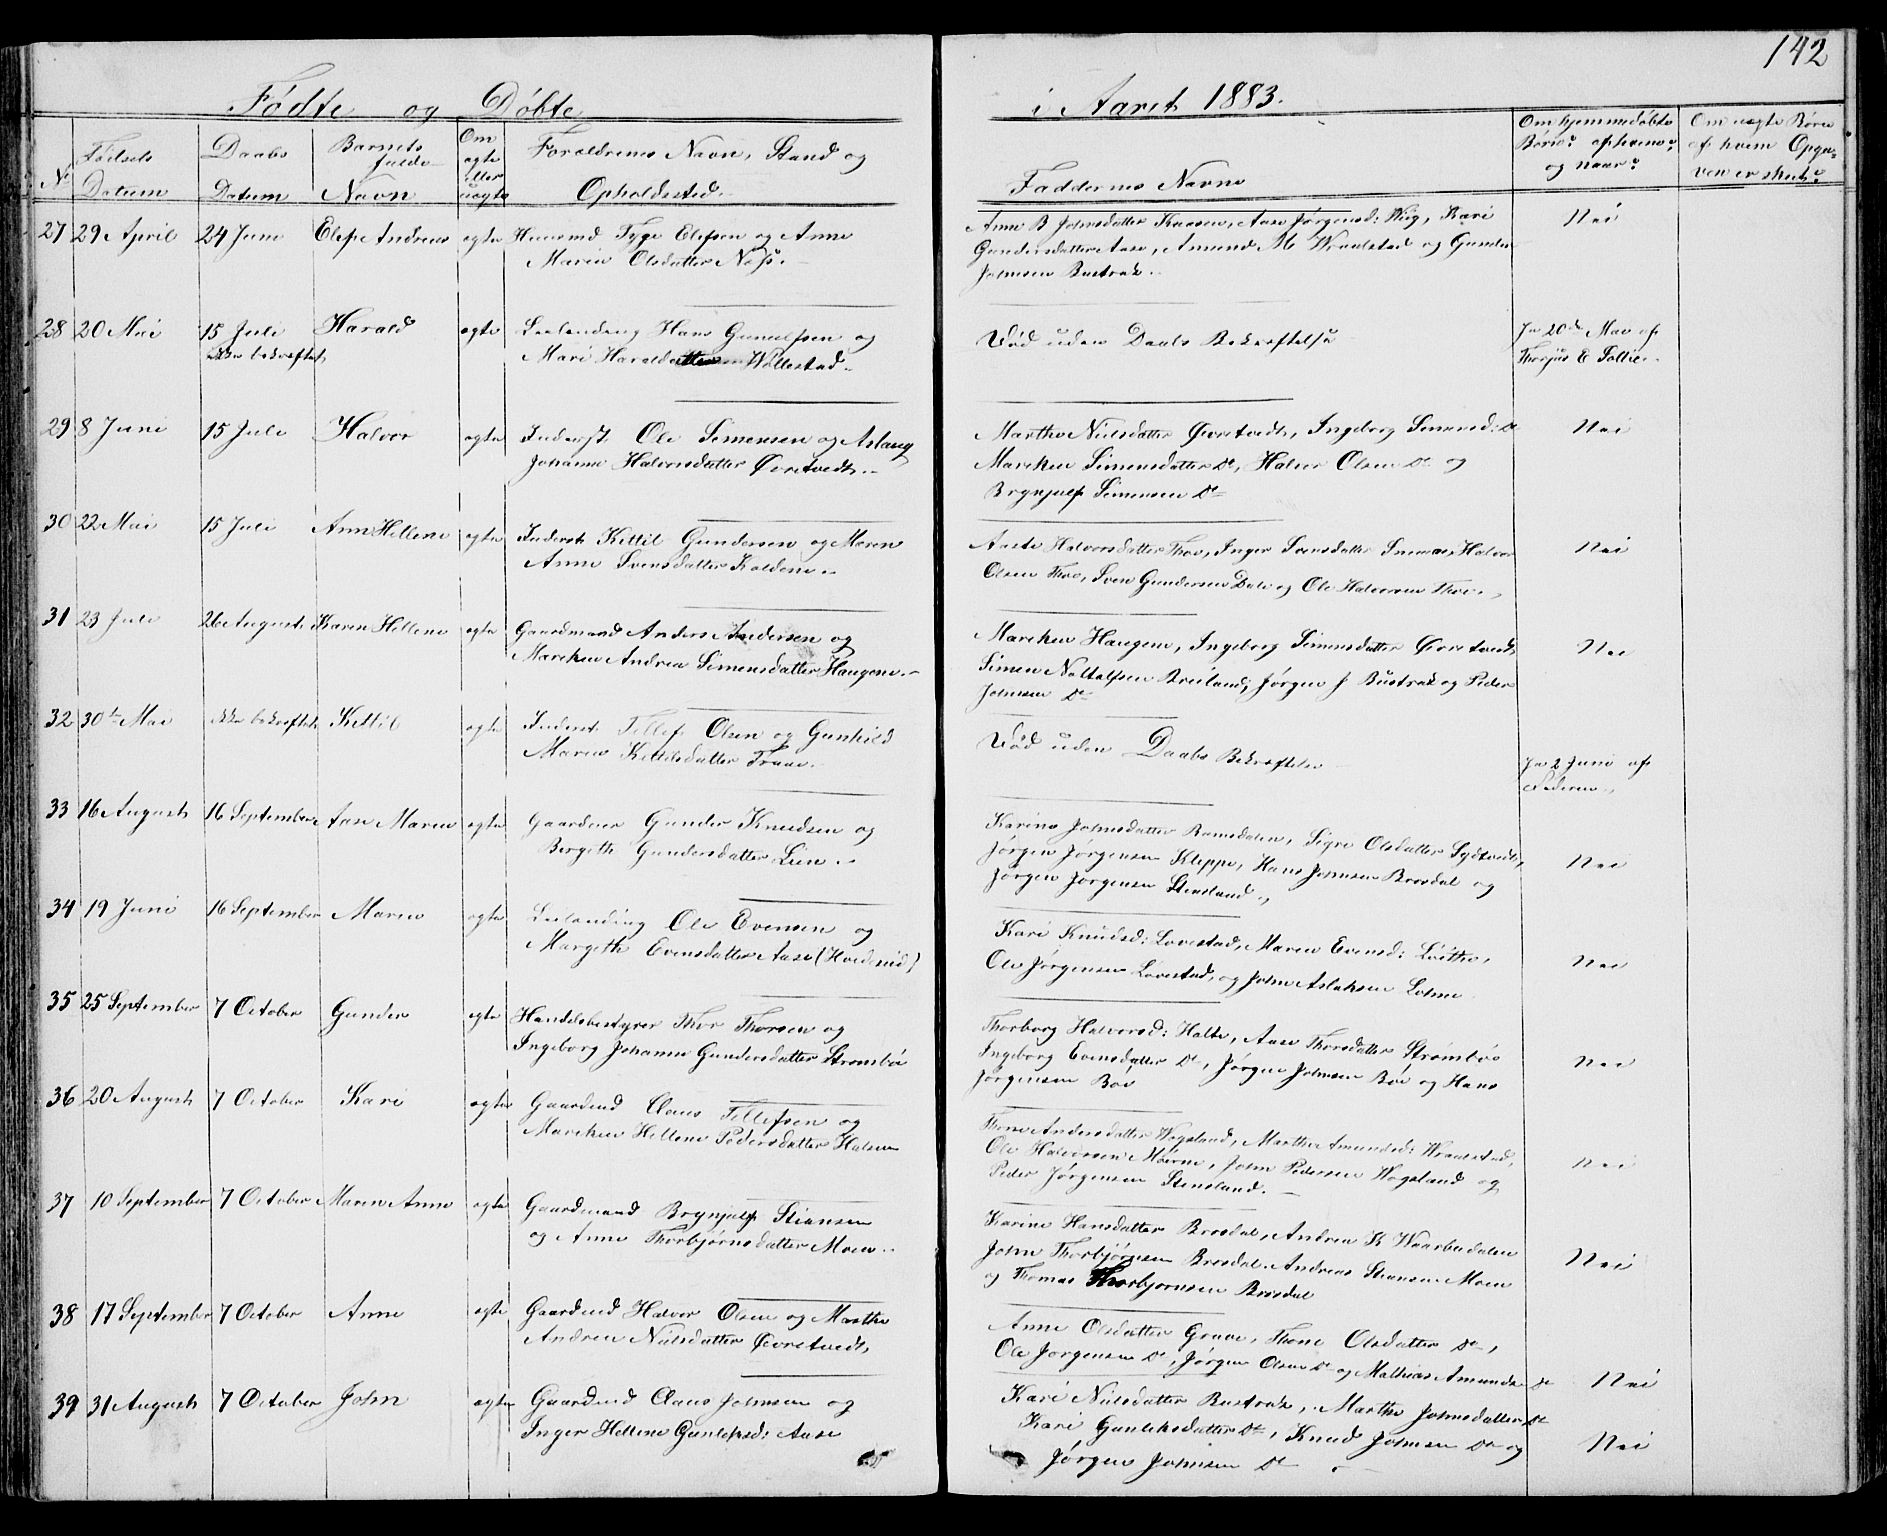 142
Fødte og Døbte i Aaret 1883.
No
Fødsels Datum
Daabs Datum
Barnets fulde Navn
Om ægte eller uægte
Forældrenes Navn, Stand og Opholdssted.
Faddernes Navne
Om hjemmedøbte Børn? af hvem? og naar?
Om uægte Børn af hvem Opgaven er skeet?
27 29 April 24 Juni Elef Andreas ægte Huusmd Tyge Elefsen og Anne
Maren Olsdatter Næss.
Anne B Johnsdatter Kaasen, Aase Jørgensd: Kari
Gundersdatter Aase, Amund M Wraalstad og Gunder
Johnsen Bustrak.
Nei
28 20 Mai 15 Juli Harald ægte Leilænding Hans Gunulfsen og
ikke bekræftet Mari Haraldsdatter Wollestad.
Død uden Daabs Bekræftelse
Ja 20de Mai af
Thorjus E Foltie.
29 8 Juni 15 Juli Halvor ægte Inderst Ole Simensen og Aslaug
Johanne Halvorsdatter Øvretvedt.
Marthe Nielsdatter Øvretvedt, Ingeborg Simensd: Do
Mareken Simensdatter Do, Halvor Olsen Do og
Brynjulf Simensen Do
Nei
30 22 Mai 15 Juli Ann Hellene ægte Inderst Kittil Gundersen og Maren
Anne Svensdatter Kolden.
Aaste Halvorsdatter Thoe, Inger Svensdatter Halvor
Olsen Thoe, Sven Gundersen Dale og Ole Halvorsen Thoe.
Nei
31 23 Juli 26 August Karen Hellene ægte Gaardmand Anders Andersen og
Mareken Andrea Simensdatter Haugene.
Mareken Haugene, Ingeborg Simensdatter Øvretvedt,
Simen Notolfsen Breiland, Jørgen J Bustrak og Peder
Johnsen Do
Nei
32 30te Mai ikke bekræftet Kittil ægte Inderst Tellef Olsen og Gunhild
Maren Kittilsdatter Traae.
Død uden Daabs Bekræftelse
Ja 2 Juni af
Faderen.
33 16 August 16 September Aase Maren ægte Gaardeier Gunder Knudsen og
Bergith Gundersdatter Lien.
Karine Johnsdatter Ramsdalen, Sigri Olsdatter Sydtvedt,
Jørgen Jørgensen Kleppe, Hans Johnsen Brosdal og
Jørgen Jørgensen Stensland.
Nei
34 19 Juni 16 September Maren ægte Leilænding Ole Evensen og
Margethe Evensdatter Aase (Hvideseid)
Kari Knudsd: Lovestad, Maren Evensd:
Ole Jørgensen Lovestad, og John Aslaksen
Nei
35 25 September 7 October Gunder ægte Handelsbestyrer Thor Thorsen og
Ingeborg Johanne Gundersdatter Strømbøe
Thorborg Halvorsd: Halte, Aase Thorsdatter Strømbøe
Ingeborg Evensdatter Do, Jørgen Johnsen Bøe og Hans
Jørgensen Bøe
Nei
36 20 August 7 October Kari ægte Gaardmd Claus Tellefsen og
Mareken Hellene Pedersdatter Halsen
Thone Andersdatter Wogsland, Marthe Amundsd: Wraalstad,
Ole Halvorsen Moerne, John Pedersen Wogsland og
Peder Jørgensen Stensland.
Nei
37 10 September 7 October Maren Anne ægte Gaardmand Brynjulf Stiansen
og Anne Thorbjørnsdatter Moen.
Karine Hansdatter Brosdal, Andrea K Waarbudalen
John Thorbjørnsen Brosdal, Andreas Stiansen Moen
og Thomas Thorbjørnsen Brosdal
Nei
38 17 September 7 October Anne ægte Gaardmd Halvor Olsen og Marthe
Andrea Nielsdatter Øvretvedt,
Anne Olsdatter Grave, Thone Olsdatter Do,
Ole Jørgensen Do, Jørgen Olsen Do og Mathias Amunds. Do
Nei
39 31 August 7 October John ægte Gaardmd Claus Johnsen og
Inger Hellene Gunlefsd: Aase
Kari Nielsdatter Bustrak, Marthe Johnsdatter Do
Kari Gunleksdatter Do, Knud Johnsen Do og
Jørgen Johnsen Do
Nei